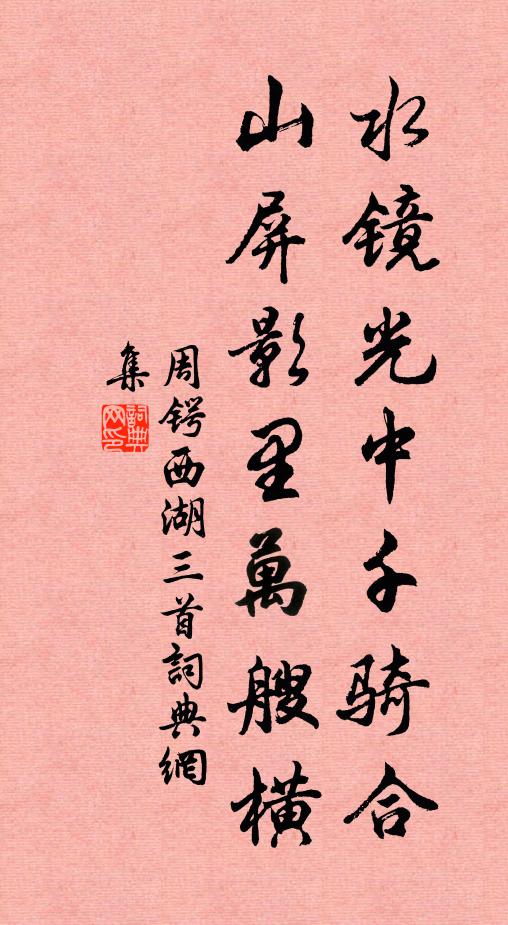 水镜光中千骑合
山屏影里萬艘横
周锷西湖三首詞典網
集
詞典
网印